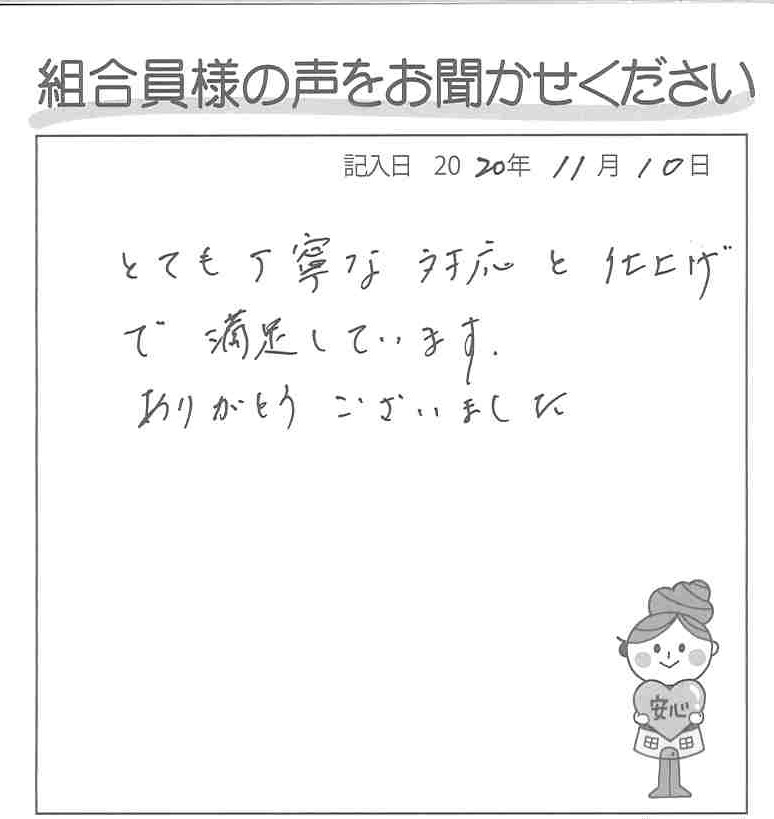 組合員様の声をお聞かせください
記入日 2020年 11月 10日
とても丁寧な 対応 と 仕上げ
で 満足しています.
ありがとう ございました
安心